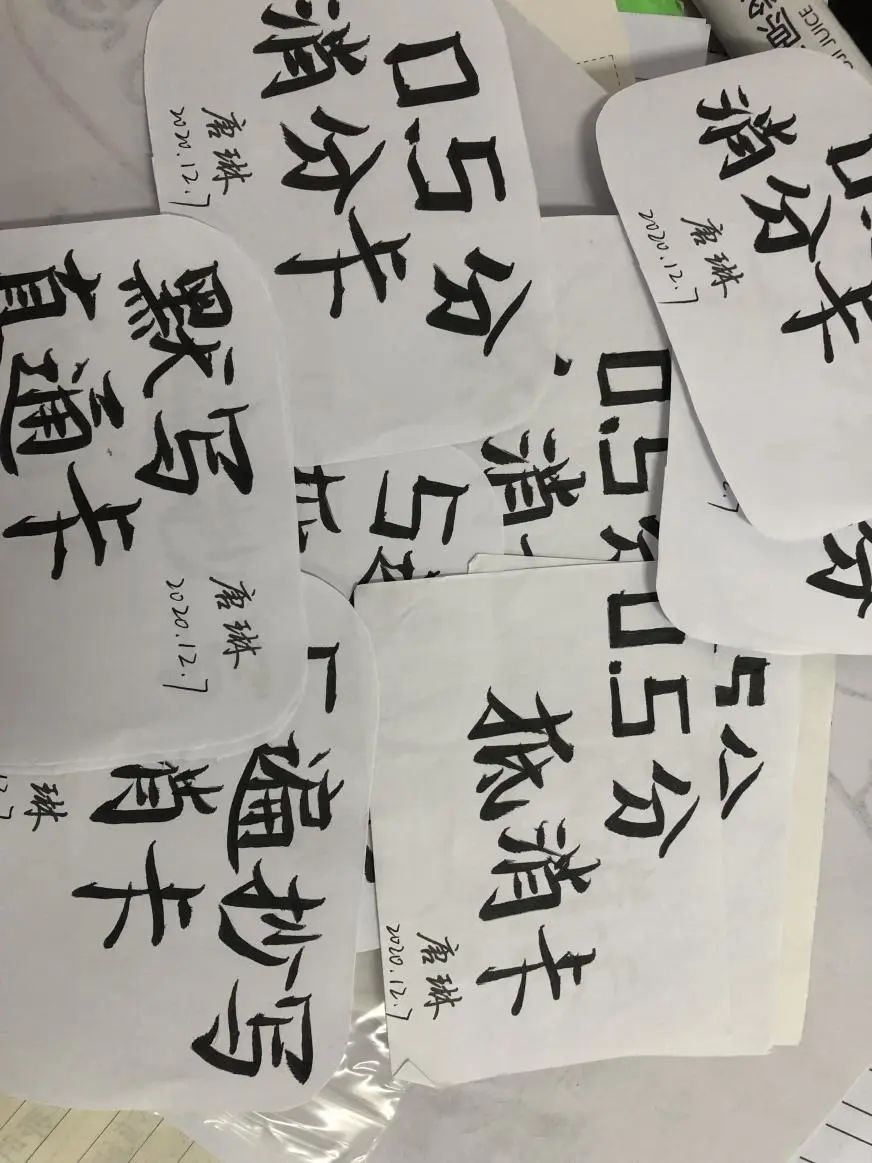 0.5分
消分卡
唐琳
2020.12.7
0.
消分卡
唐琳
2020.12.7
默写
直通卡
唐琳
2020.12.7
0.5分
消
5
分
0.5分
抵消卡
唐琳
2020.12.7
遍抄写
消卡
琳